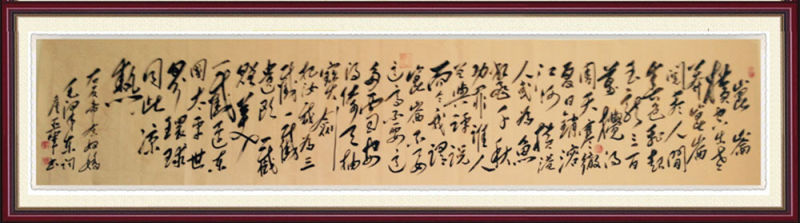 崑崙
横空出世
莽崑崙
阅尽人间
春色飛起
玉龍三百
萬攪得
周天寒徹
夏日銷溶
江河横溢
人或為魚
鳖千秋
功罪誰人
曾與評説
而今我謂
崑崙不要
這高不要這
多雪安
得倚天抽
寶劍
把汝裁為三
截一截
遺欧一截
贈美
一截還东
國太平世
界環球
同此凉
熱
毛澤东词